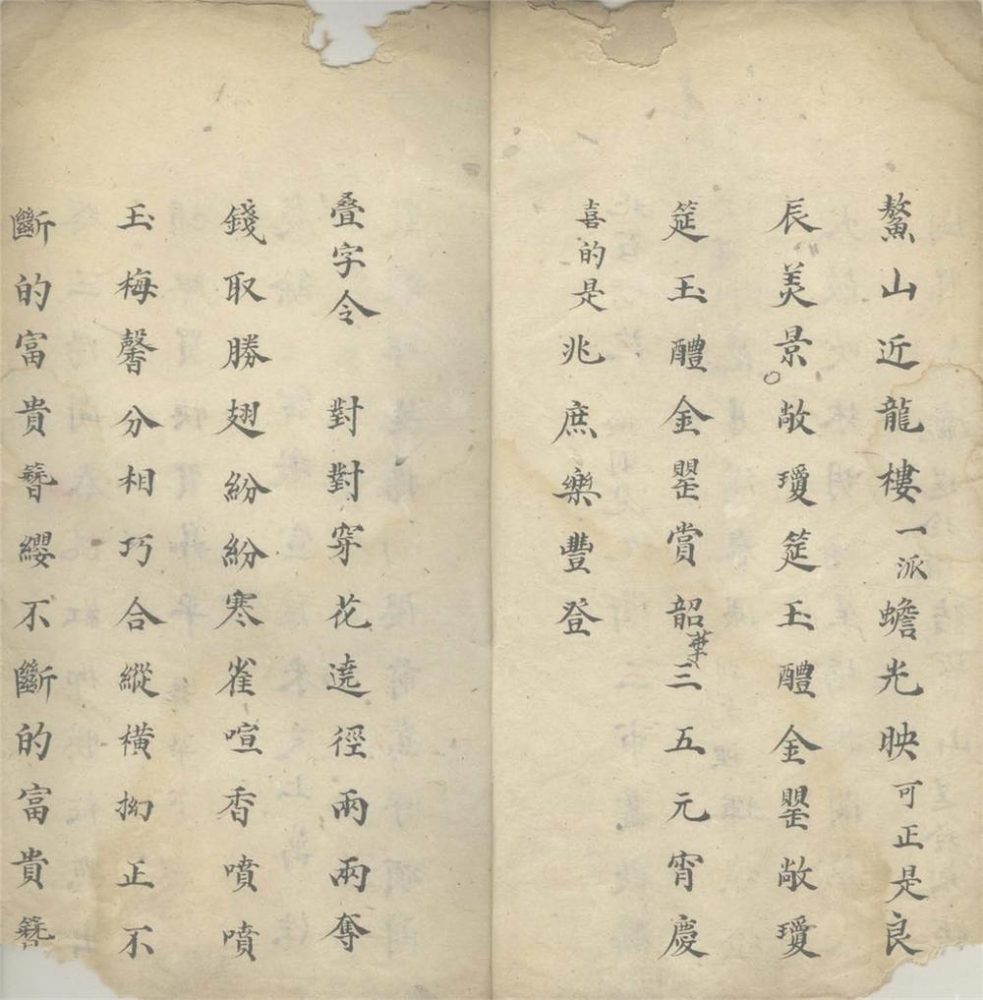 鰲山近龍樓一派蟾光映可正是良
辰美景敞瓊筵玉醴金罍敞瓊
筵玉醴金罍賞韶華三五元宵慶
喜的是兆庶樂豐登
疊字令　對對穿花遶徑兩兩奪
錢取勝翅紛紛寒雀喧香噴噴
玉梅馨分相巧合縱橫拗正不
斷的富貴簪纓不斷的富貴簪